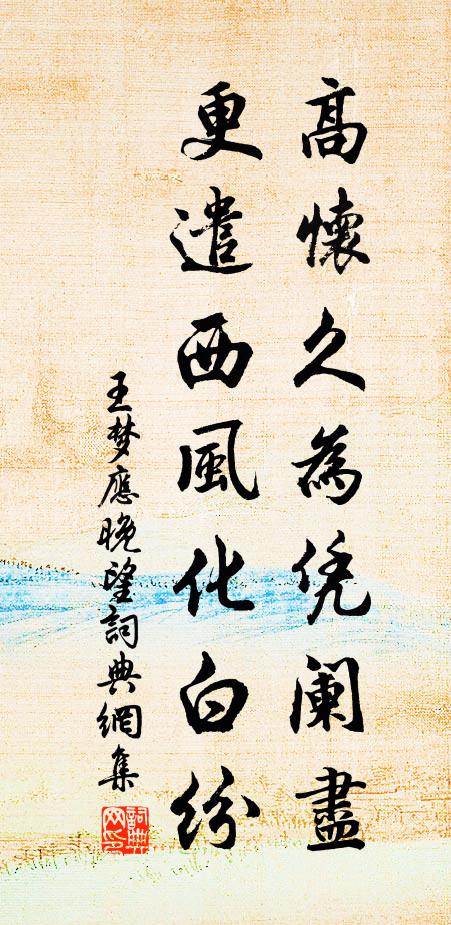 高懷久為凭阑盡
更遣西風化白紛
王梦應晚望詞典網集
詞典网印